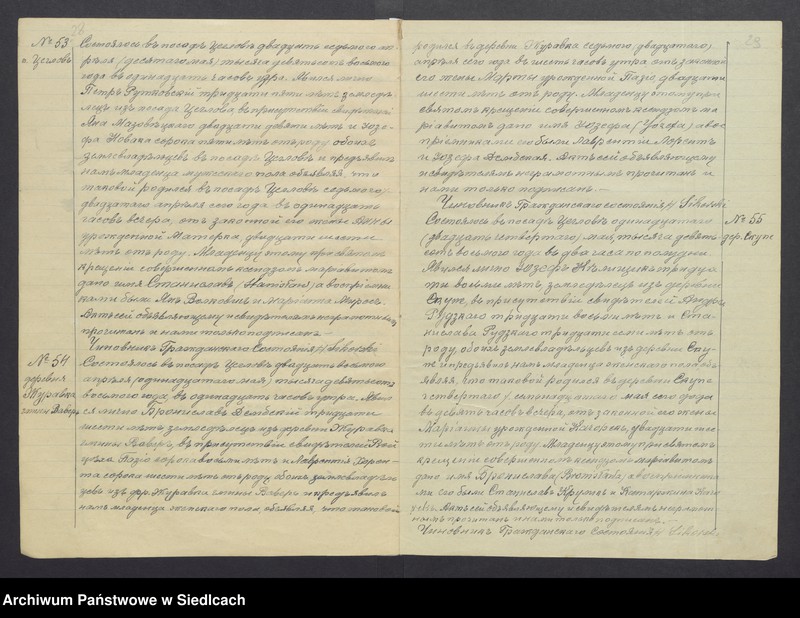 № 53
п. Цегловъ
Состоялось въ посадѣ Цегловъ двадцать седьмого
рѣля (десятаго мая) тысяча девятьсотъ восьмого
года въ одинадцать часовъ утра. Явился лично
Петръ Рутковскій тридцати пяти лѣтъ земледѣ
лецъ изъ посада Цеглова, въ присутствіи свидѣтелей
Яна Мазовѣцкаго двадцати девяти лѣтъ и Іозе
фа Новака сорока пяти лѣтъ отъ роду обоихъ
землевладѣльцевъ въ посадѣ Цегловъ и предъявилъ
намъ младенца мужескаго пола объявляя, что
таковой родился въ посадѣ Цегловъ седьмого
двадцатаго апрѣля сего года въ одинадцать
часовъ вечера, отъ законной его жены Анны
урожденной Матерка, двадцати шести
лѣтъ отъ роду. Младенцу этому при святомъ
крещеніи совершенномъ ксендзомъ маріавитомъ
дано имя Станиславъ, а воспріемни
ками были Янъ Волковичъ и Маріанна Миросъ.
Актъ сей объявляющему и свидѣтелямъ неграмотнымъ
прочитанъ и нами только подписанъ. —
Чиновникъ Гражданскаго Состоянія Sikorski
№ 54
деревня
Журавка
гмины Ваверъ
Состоялось въ посадѣ Цегловъ двадцать восьмого
апрѣля (одинадцатаго мая) тысяча девятьсотъ
восьмого года, въ одинадцать часовъ утра. Явил
ся лично Брониславъ Дембскій тридцати
шести лѣтъ земледѣлецъ изъ деревни Журавка
гмины Ваверъ, въ присутствіи свидѣтелей Вой
цѣха Пазіо сорока восьми лѣтъ и Лаврентія
та сорока шести лѣтъ отъ роду обоихъ землевладѣль
цевъ изъ дер. Журавка гмины Ваверъ и предъявилъ
намъ младенца женскаго пола, объявляя, что таковой
23
родился въ деревни Журавка седьмого (двадцатаго)
апрѣля сего года въ шесть часовъ утра, отъ законной
его жены Марты урожденной Пазіо, двадцати
шести лѣтъ отъ роду. Младенцу этому при
святомъ крещеніи совершенномъ ксендзомъ ма
ріавитомъ дано имя Іозефа (Józefa) а вос
пріемниками его были Лаврентій
и Іозефа Дембская. Актъ сей объявляющему
и свидѣтелямъ неграмотнымъ прочитанъ и
нами только подписанъ. —
Чиновникъ Гражданскаго состоянія Sikorski
№ 55
дер. Скупе
Состоялось въ посадѣ Цегловъ одинадцатаго
(двадцать четвертаго) мая, тысяча девять
сотъ восьмого года въ два часа по полудни.
Явился лично Іозефъ тридца
ти восьми лѣтъ земледѣлецъ изъ деревни
Скупе, въ присутствіи свидѣтелей
Рудзкаго тридцати восьми лѣтъ и Ста
нислава Рудзкаго тридцати семи лѣтъ отъ
роду, обоихъ землевладѣльцевъ изъ деревни Ску
пе и предъявилъ намъ младенца женскаго пола объ
являя, что таковой родился въ деревни Скупе
четвертаго (семнадцатаго) мая сего года
въ девять часовъ вечера, отъ законной его жены
Маріанны урожденной двадцати шес
ти лѣтъ отъ роду. Младенцу этому при святомъ
крещеніи совершенномъ ксендзомъ маріавитомъ
дано имя Бронислава (Bronisława) а воспріемника
ми его были Станиславъ и Катаржина
Актъ сей объявляющему и свидѣтелямъ неграмот
нымъ прочитанъ и нами только подписанъ. —
Чиновникъ Гражданскаго Состоянія Sikorski
Archiwum Państwowe w Siedlcach